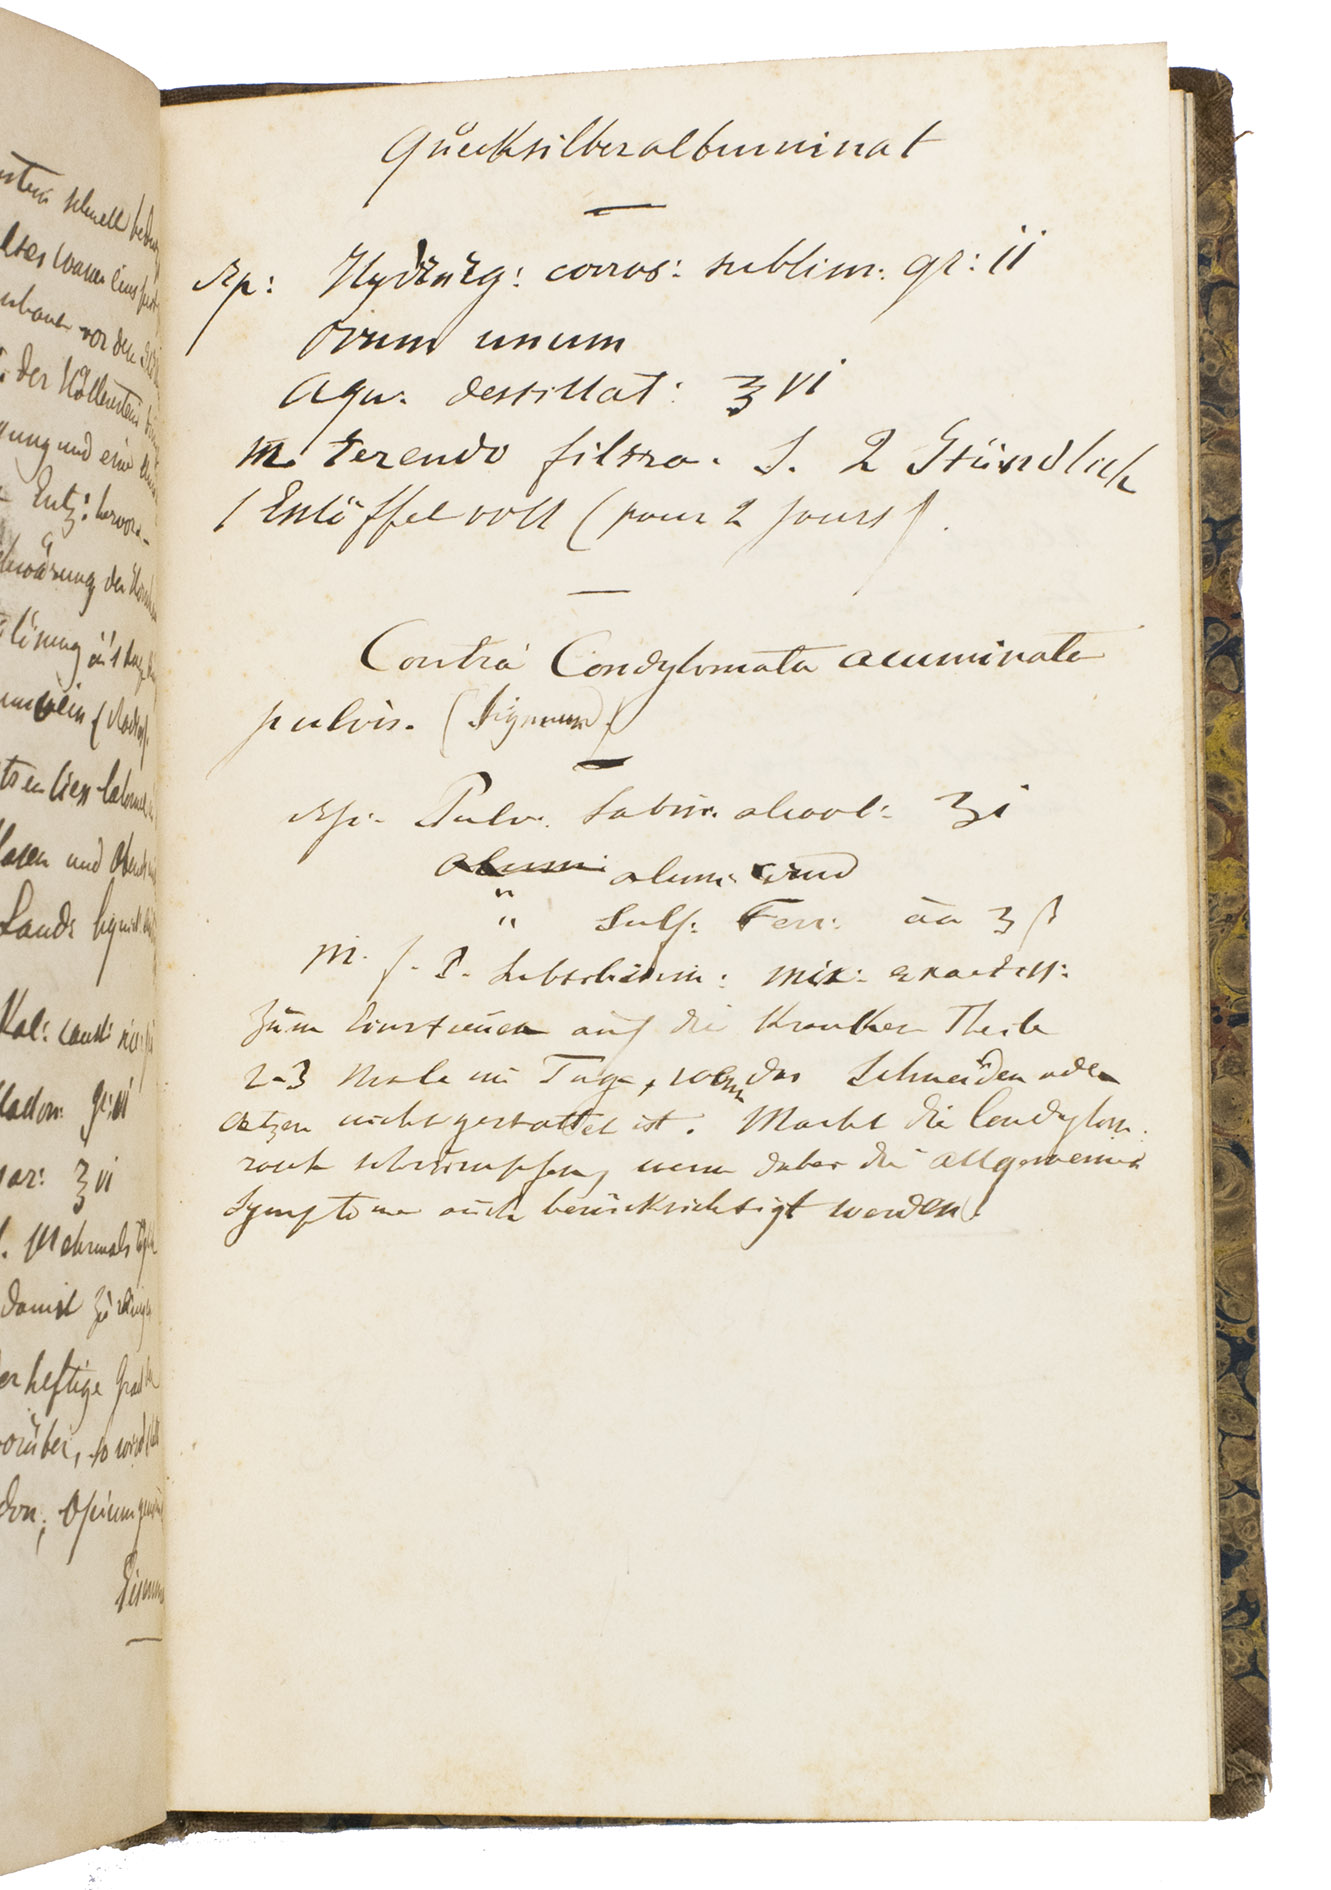 stein schnell
der Höllenstein
gung und eine
Entz: hervor-
lösung
Hasen und Abends
Kal: caust:
ladon: gr: vi
ar: ℥ vi
S. Mehrmals
damit zu
er heftige Grad
vorüber, so wird
don, Opium
Quecksilberalbuminat
Rp: Hydrarg: corros: sublim: gr: ii
Ovum unum
Aqu. destillat: ℥ vi
M. terendo filtra. S. 2 Stündlich
1 Eslöffel voll (pour 2 jours).
Contra Condylomata acuminata
pulvis. (Sigmund)
Rp. Pulv. Sabin. alcool: ʒ i
alum: alum: crud
" Sulf: Ferr: aa ʒ ß
M. f. P. Subtilissim: mix: exactiss:
Zum Einstreuen auf die Kranken Theile
2-3 Male im Tage, wenn das Schneiden oder
Aetzen nicht gestattet ist. Macht die Condylom:
rasch schrumpfen, wenn dabei die allgemeinen
Symptome auch berücksichtigt werden.